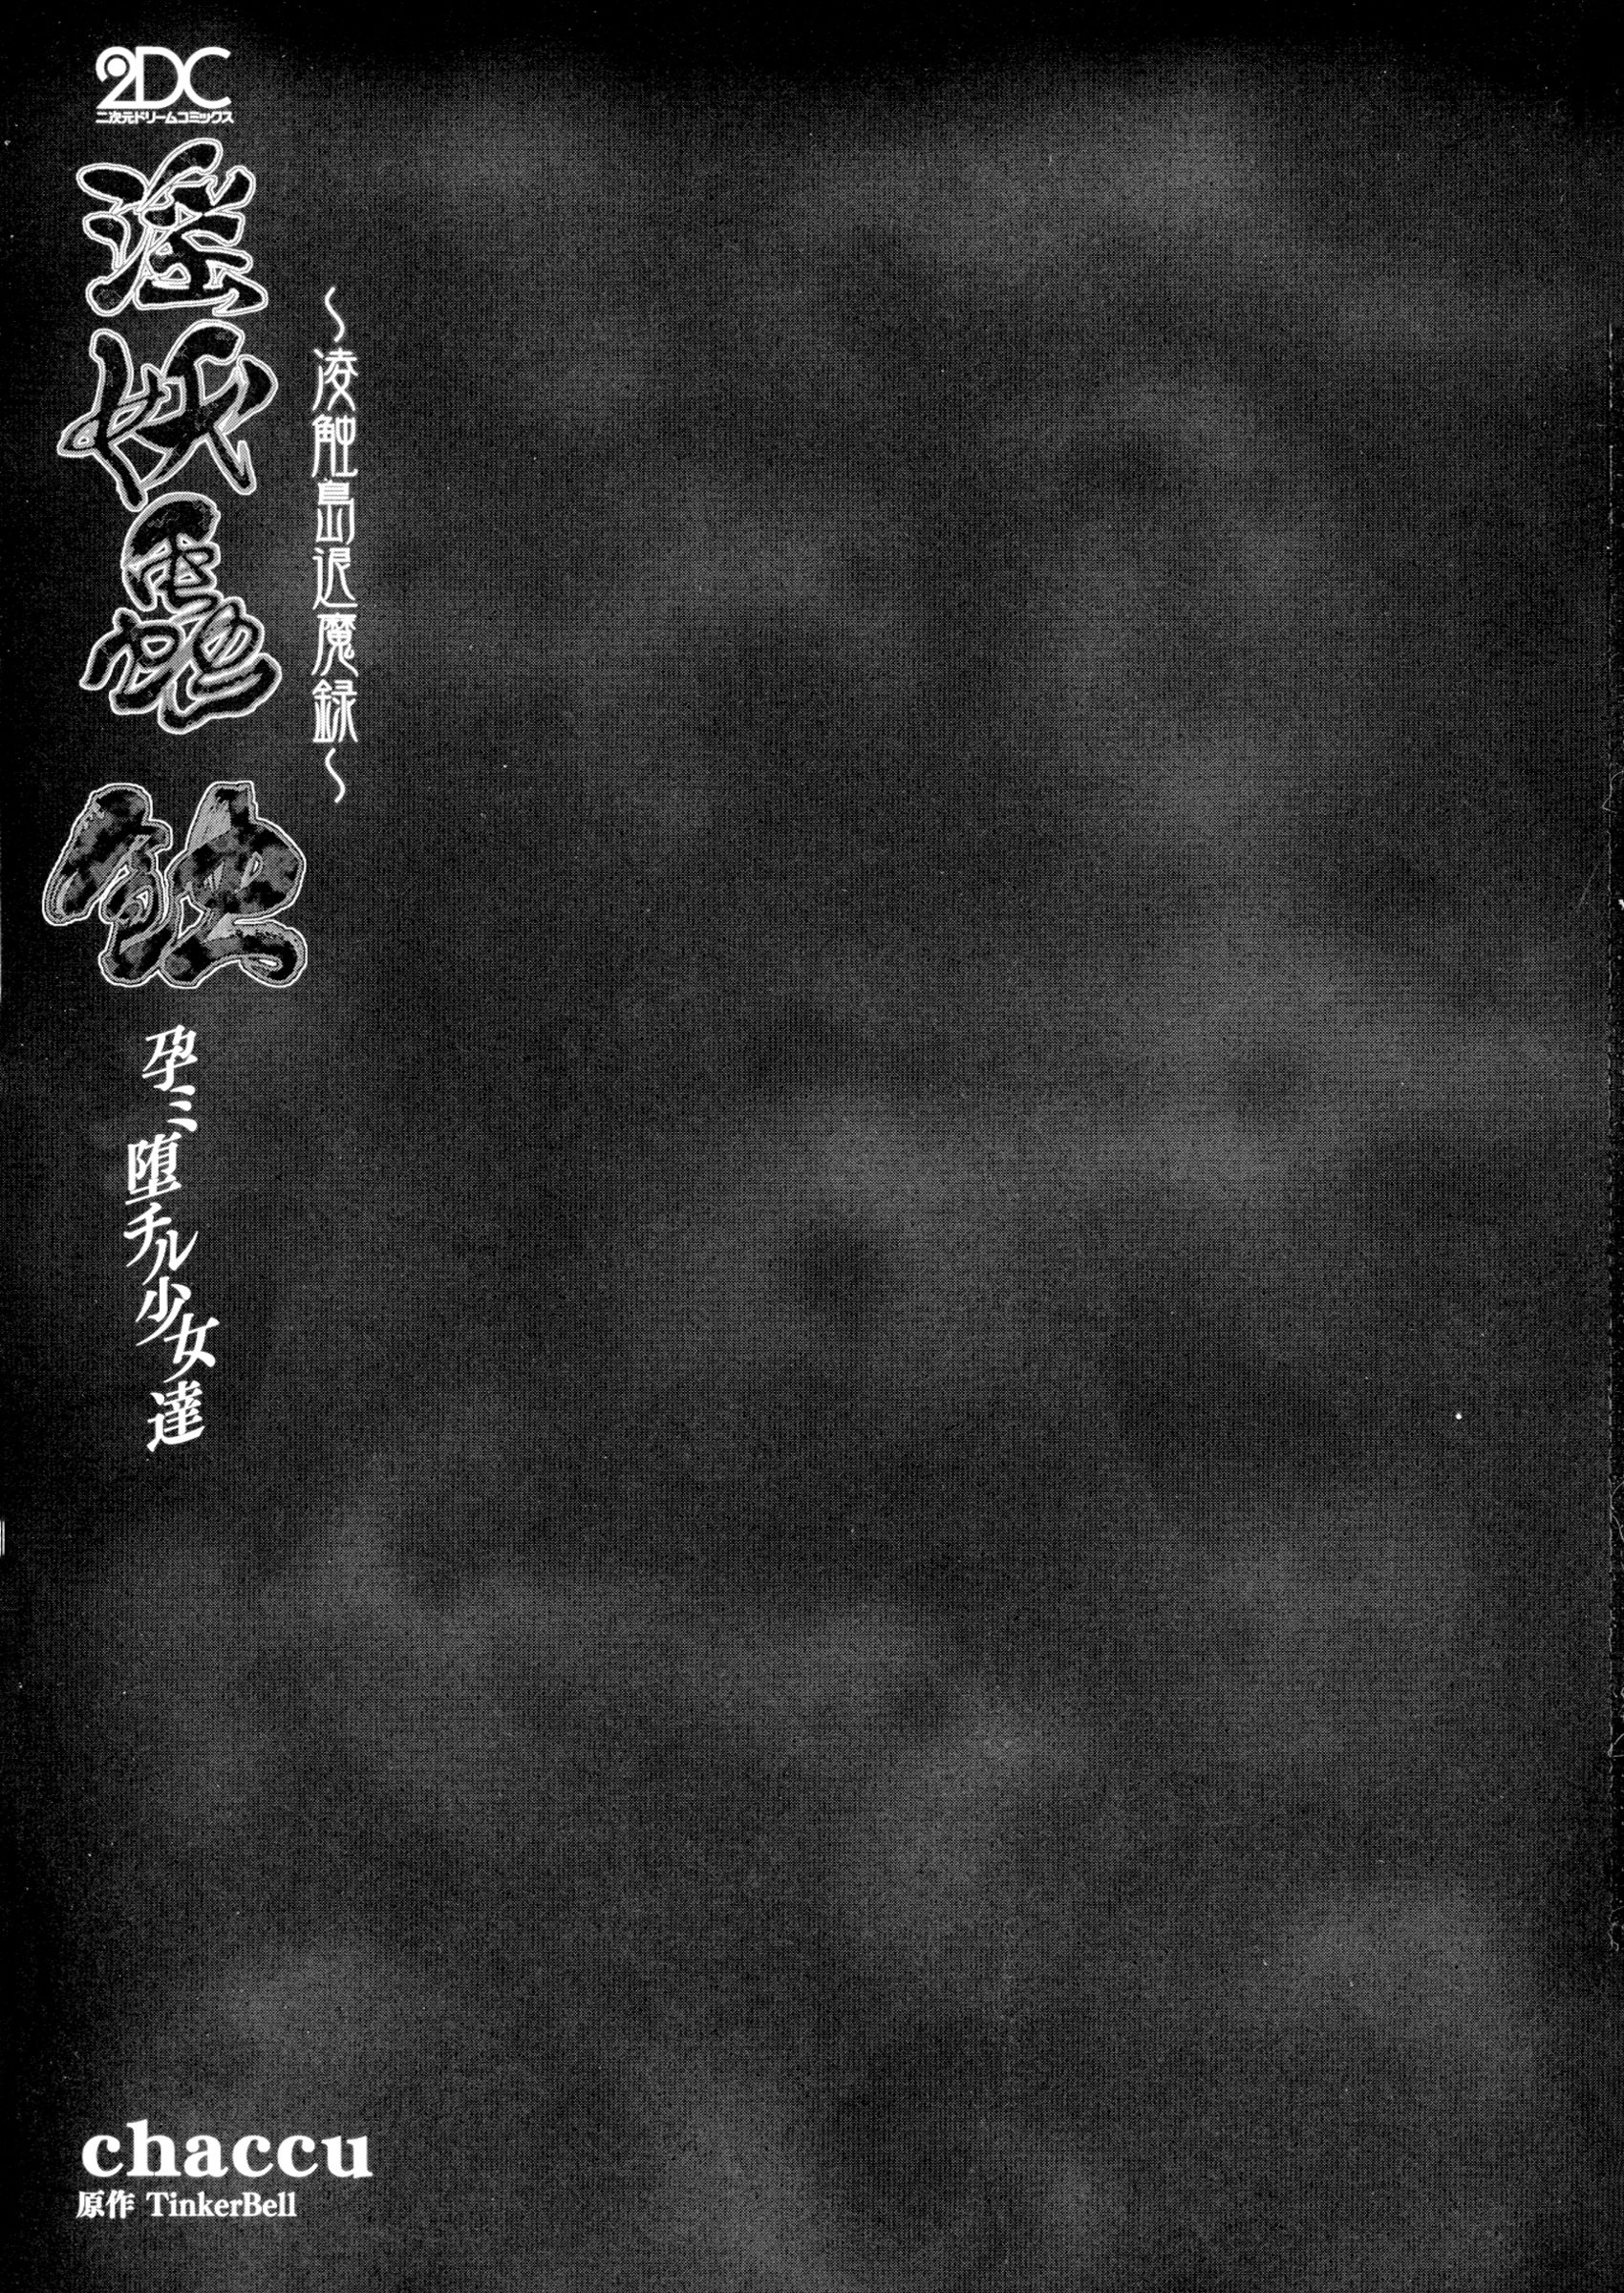 2DC
二次元ドリームコミックス
淫妖蟲 蝕
〜凌触島退魔録〜
孕ミ堕チル少女達
chaccu
原作 TinkerBell